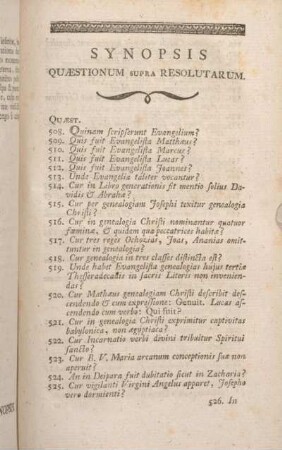 SYNOPSIS
QUÆSTIONUM SUPRA RESOLUTARUM.
QUÆST.
508. Quinam scripserunt Evangelium?
509. Quis fuit Evangelista Matthæus?
510. Quis fuit Evangelista Marcus?
511. Quis fuit Evangelista Lucas?
512. Quis fuit Evangelista Joannes?
513. Unde Evangelia taliter vocantur?
514. Cur in Libro generationis fit mentio solius Da-
vidis & Abrahæ?
515. Cur per genealogiam Josephi texitur genealogia
Christi?
516. Cur in genealogia Christi nominantur quatuor
fæminæ, & quidem quæ peccatrices habitæ?
517. Cur tres reges Ochozias, Joas, Ananias omit-
tuntur in genealogia?
518. Cur genealogia in tres classes distincta est?
519. Unde habet Evangelista genealogias hujus tertiæ
Thesseradecatis in sacris Literis non invenien-
dar?
520. Cur Mathæus genealogiam Christi describit des-
cendendo & cum expressione: Genuit. Lucas as-
cendendo cum verbo: Qui fuit?
521. Cur in genealogia Christi exprimitur captivitas
babylonica, non ægyptiaca?
522. Cur Incarnatio verbi divini tribuitur Spiritui
sancto?
523. Cur B. V. Maria arcanum conceptionis suæ non
aperuit?
524. An in Deipara fuit dubitatio sicut in Zacharia?
525. Cur vigilanti Virgini Angelus apparet, Josepho
vero dormienti?
526. An